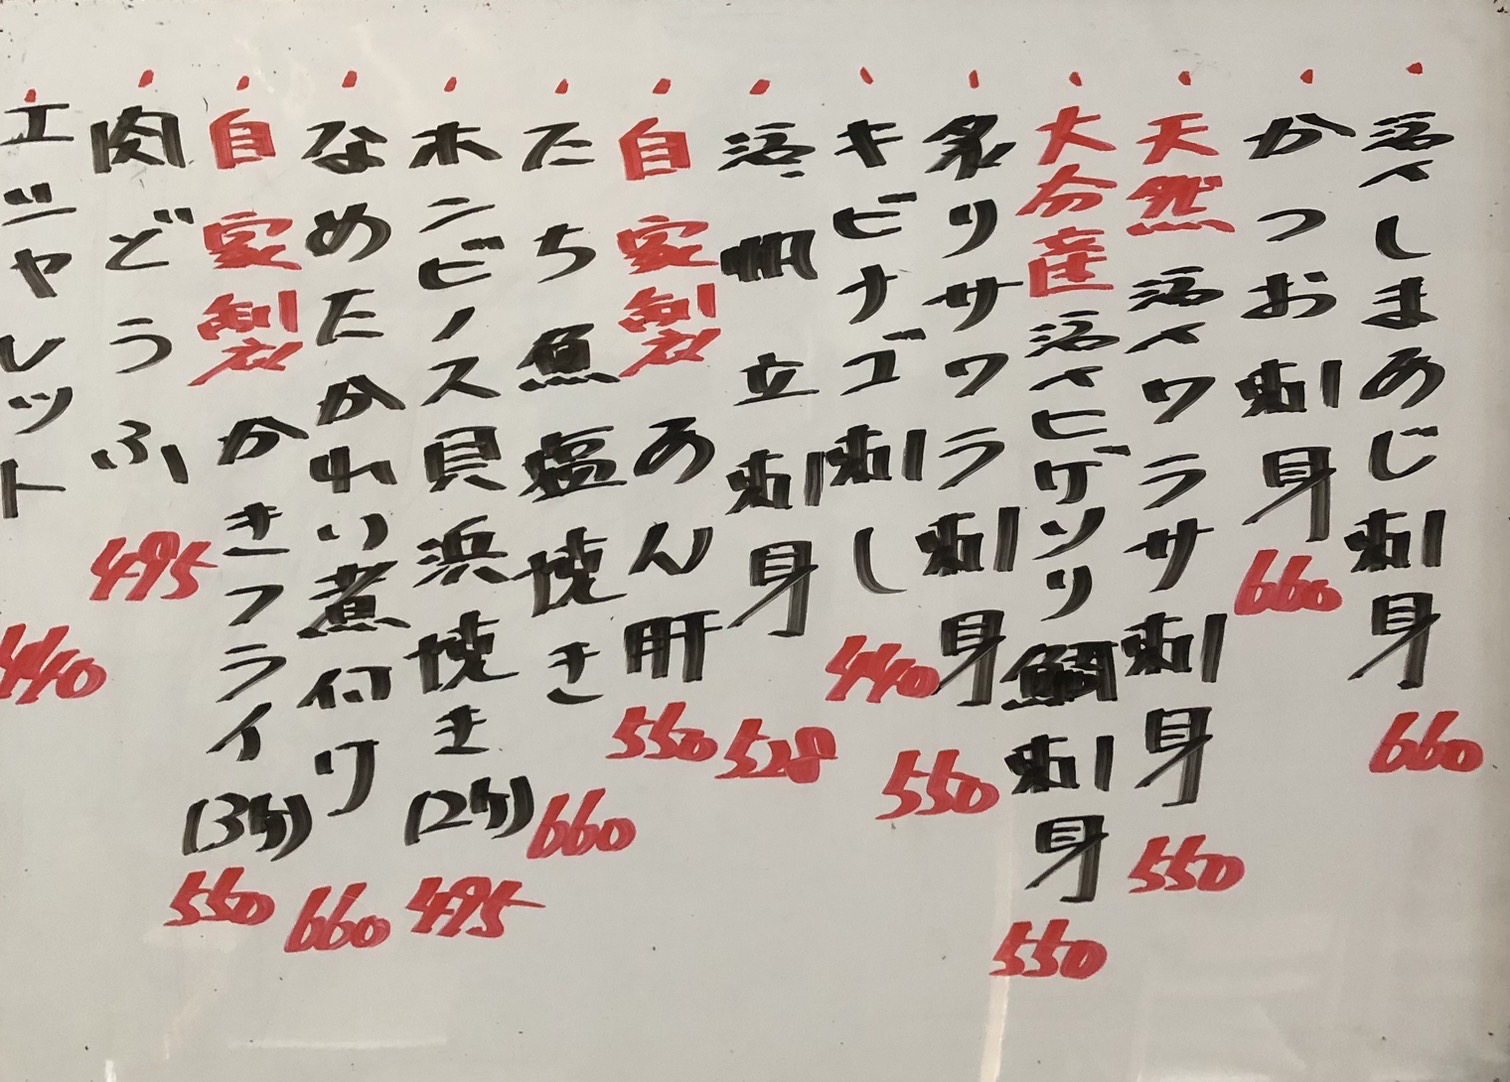 活〆しまあじ刺身 660
かつお刺身 660
天然活〆ワラサ刺身 550
大分産活〆ヒゲソリ鯛刺身 550
炙りサワラ刺身 550
キビナゴ刺し 440
活帆立刺身 528
自家製あん肝 550
たち魚塩焼き 660
ホンビノス貝浜焼き(2ケ) 495
なめたかれい煮付け 660
自家製かきフライ(3ケ) 550
肉どうふ 495
エシャレット 440